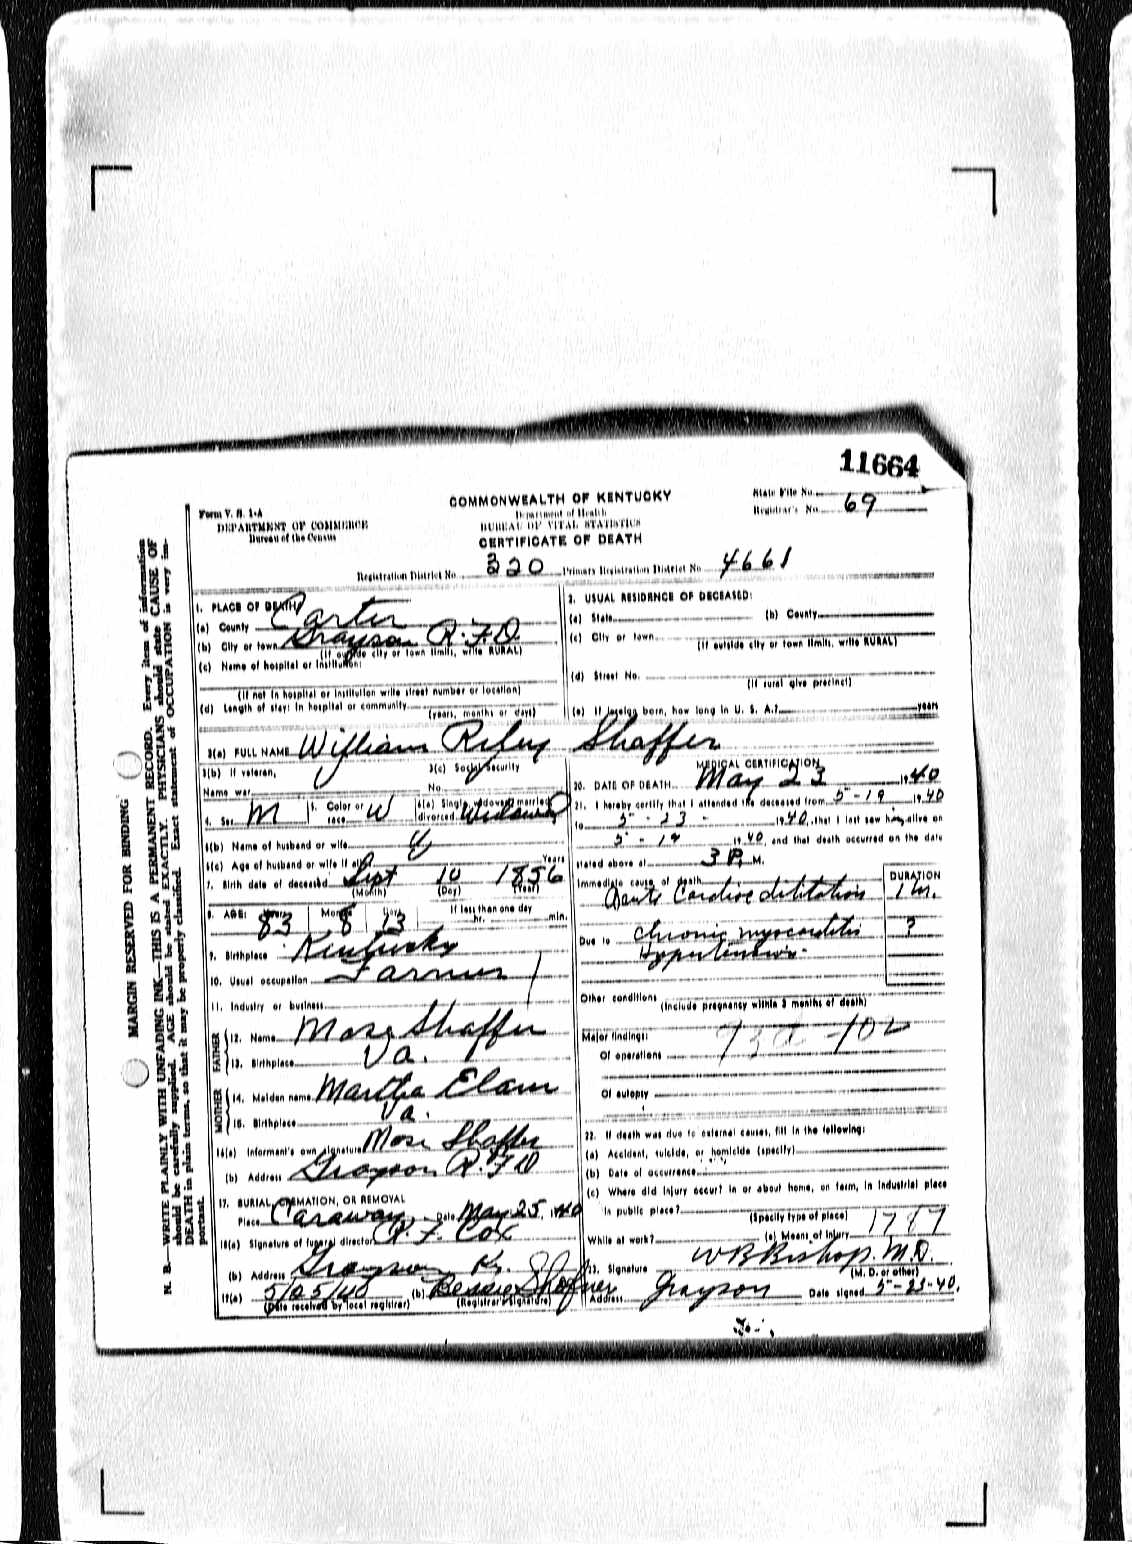 11664
Form V. S. 1-A
DEPARTMENT OF COMMERCE
Bureau of the Census
COMMONWEALTH OF KENTUCKY
Department of Health
BUREAU OF VITAL STATISTICS
CERTIFICATE OF DEATH
State File No.
Registrar's No. 69
Registration District No. 220 Primary Registration District No. 4661
MARGIN RESERVED FOR BINDING
N. B.—WRITE PLAINLY WITH UNFADING INK—THIS IS A PERMANENT RECORD. Every item of information
should be carefully supplied. AGE should be stated EXACTLY. PHYSICIANS should state CAUSE OF
DEATH in plain terms, so that it may be properly classified. Exact statement of OCCUPATION is very im-
portant.
1. PLACE OF DEATH:
(a) County Carter
(b) City or town Grayson R.F.D.
(If outside city or town limits, write RURAL)
(c) Name of hospital or institution:
(If not in hospital or institution write street number or location)
(d) Length of stay: In hospital or community
(years, months or days)
2. USUAL RESIDENCE OF DECEASED:
(a) State (b) County
(c) City or town
(If outside city or town limits, write RURAL)
(d) Street No.
(If rural give precinct)
(e) If foreign born, how long in U. S. A.? years
3(a) FULL NAME William Riley Shaffer
3(b) If veteran, 3(c) Social Security
Name war No.
4. Sex M 5. Color or race W 6(a) Single, widowed, married, divorced Widowed
6(b) Name of husband or wife
6(c) Age of husband or wife if alive Years
7. Birth date of deceased Sept 10 1856
(Month) (Day) (Year)
8. AGE: Years 83 Months 8 Days 13 If less than one day hr. min.
9. Birthplace Kentucky
10. Usual occupation Farmer
11. Industry or business
FATHER
12. Name Mose Shaffer
13. Birthplace Va.
MOTHER
14. Maiden name Martha Elam
15. Birthplace Va.
16(a) Informant's own signature Mose Shaffer
(b) Address Grayson R.F.D
17. BURIAL, CREMATION, OR REMOVAL
Place Caraway Date May 25, 1940
18(a) Signature of funeral director R. F. Cox
(b) Address Grayson Ky.
19(a) 5/25/40 (b) Bessie Shafner
(Date received by local registrar) (Registrar's signature)
MEDICAL CERTIFICATION
20. DATE OF DEATH May 23 1940
21. I hereby certify that I attended the deceased from 5-19 1940
to 5-23- 1940, that I last saw him alive on
5-19 1940, and that death occurred on the date
stated above at 3 P. M.
DURATION
Immediate cause of death
Acute Cardiac dilitation 1 hr.
Due to Chronic myocarditis ?
Hypertension
Other conditions
(Include pregnancy within 3 months of death)
Major findings:
Of operations
Of autopsy
22. If death was due to external causes, fill in the following:
(a) Accident, suicide, or homicide (specify)
(b) Date of occurrence
(c) Where did injury occur? In or about home, on farm, in industrial place
in public place?
(Specify type of place)
While at work? (e) Means of Injury
23. Signature W B Bishop. M.D.
(M. D. or other)
Address Grayson Date signed 5-23-40.